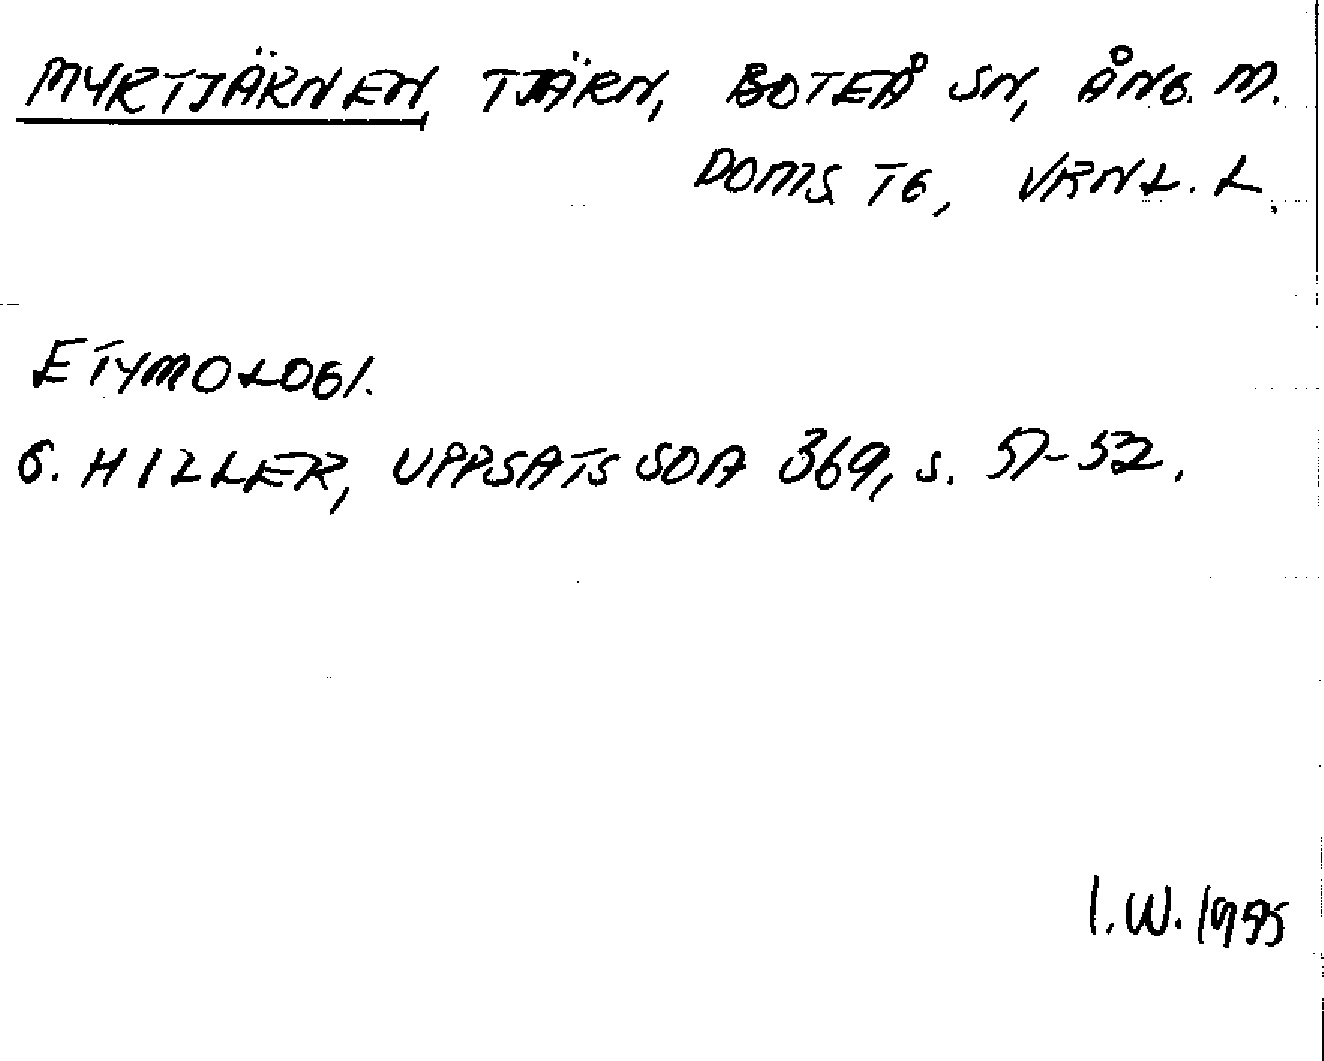 MYRTJÄRNEN, TJÄRN, BOTEÅ SN, ÅNG. M.
DOMS TG, VRNL. L.
ETYMOLOGI.
G. HILLER, UPPSATS SOA 369, s. 51-52.
I.W. 1995